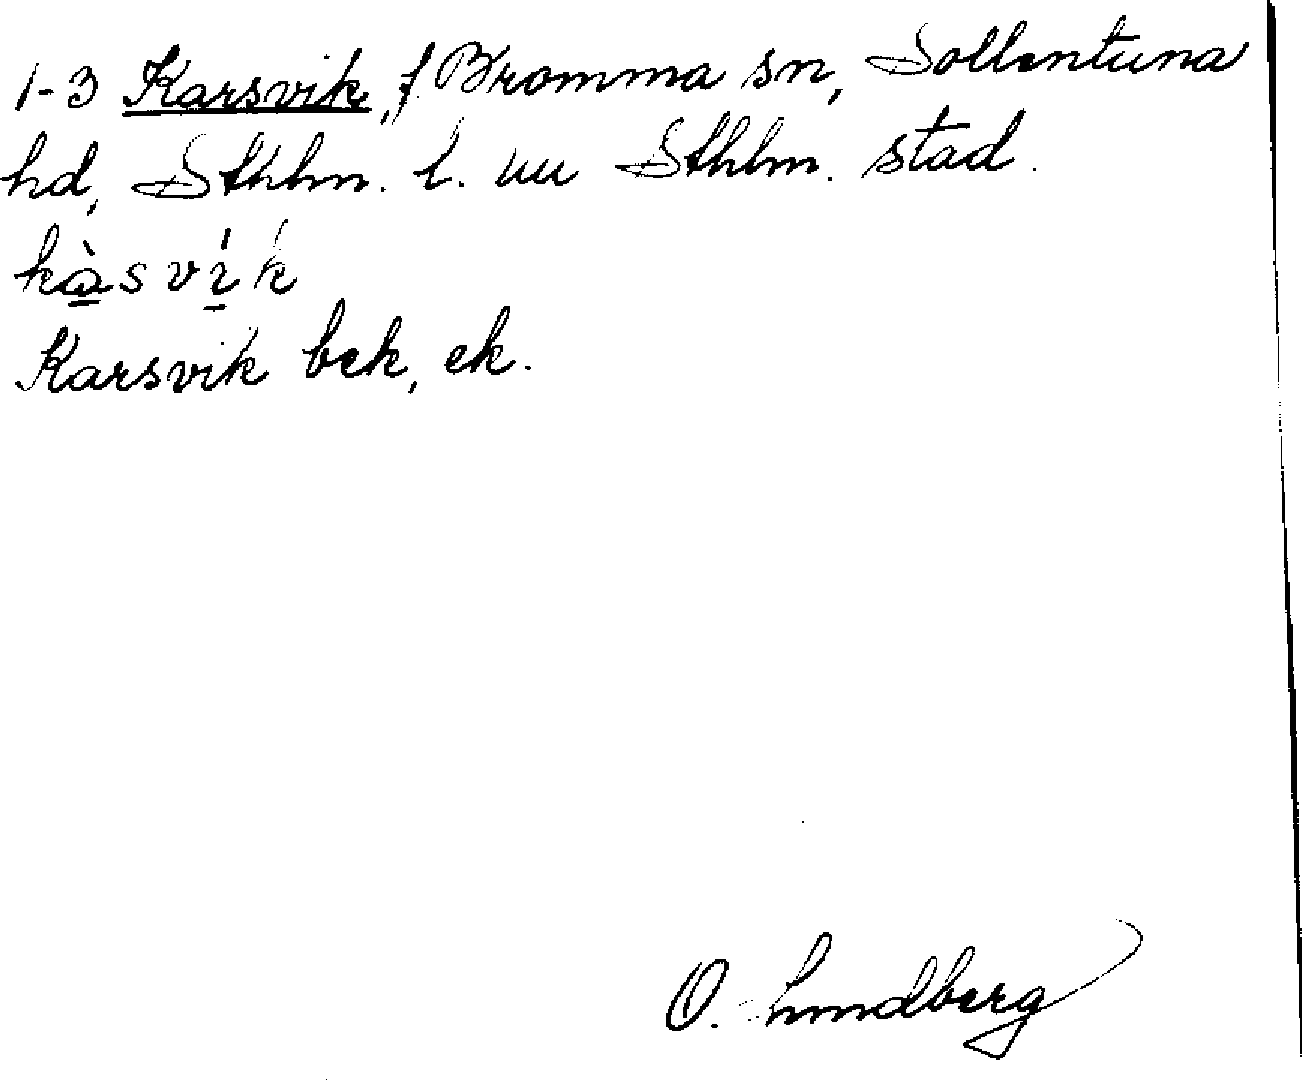 1-3 Karsvik, f Bromma sn, Sollentuna
hd, Sthlm. l. nu Sthlm. stad.
kàsvík
Karsvik bek, ek.
O. Lundberg